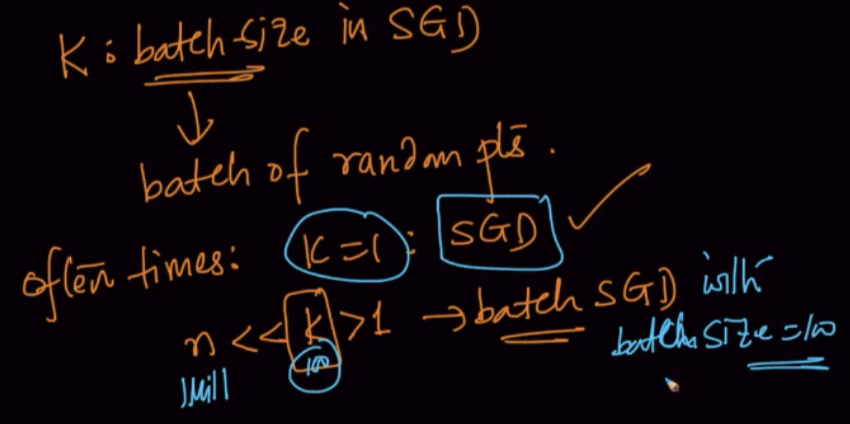 K: batch size in SGD
↓
batch of random pts.
often times: K=1: SGD ✓
n << K > 1 → batch SGD with
1Mill 100 batch size = 100